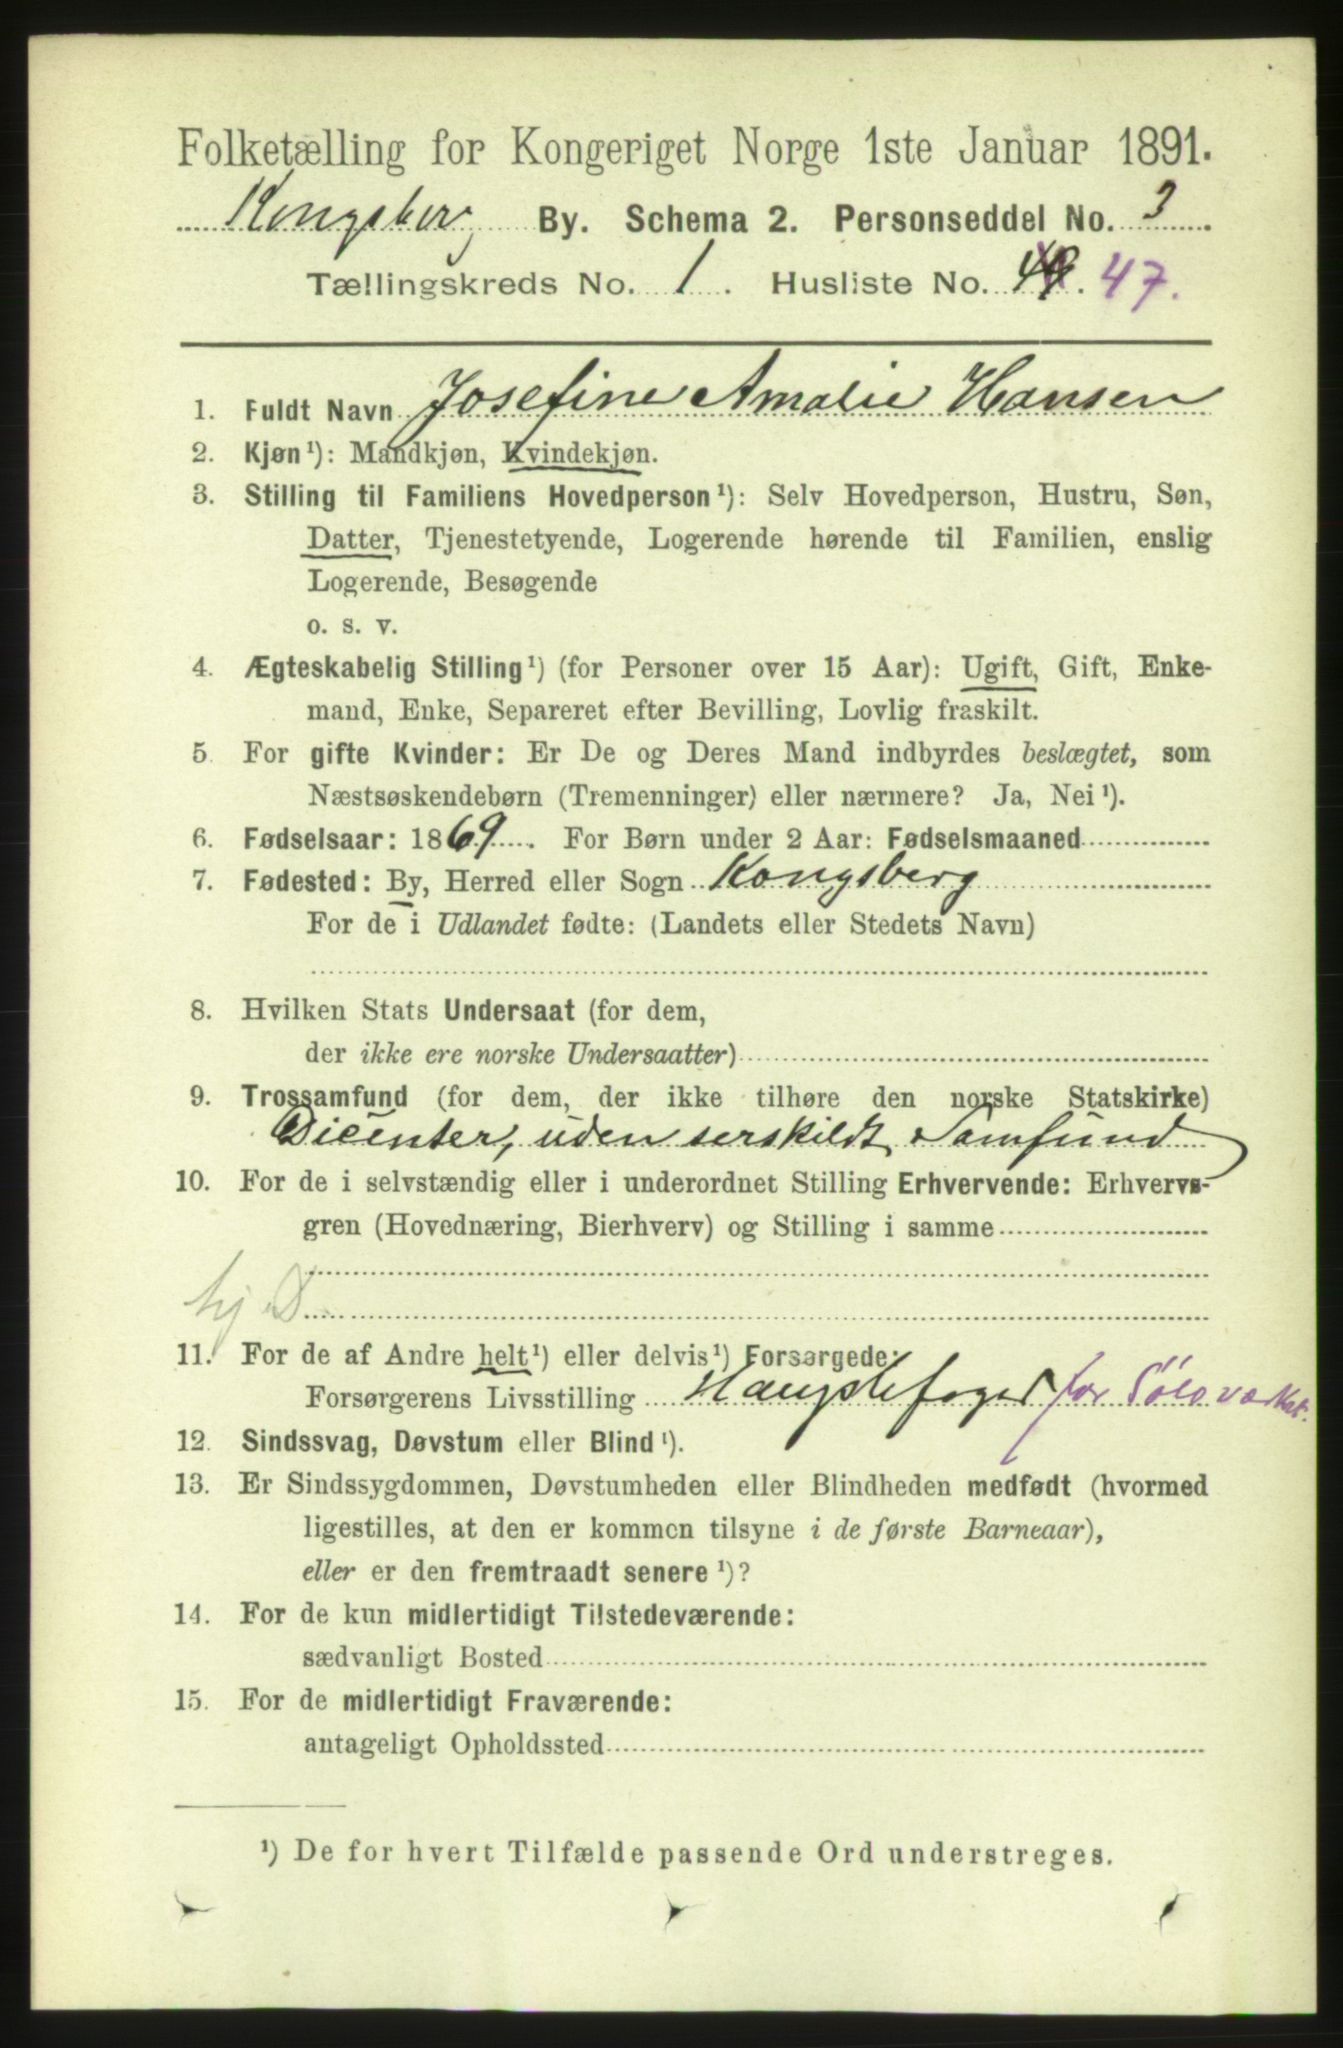 Folketælling for Kongeriget Norge 1ste Januar 1891.
Kongsberg By. Schema 2. Personseddel No. 3
Tællingskreds No. 1. Husliste No. 49. 47.
1. Fuldt Navn Josefine Amalie Hansen
2. Kjøn¹): Mandkjøn, Kvindekjøn.
3. Stilling til Familiens Hovedperson¹): Selv Hovedperson, Hustru, Søn,
Datter, Tjenestetyende, Logerende hørende til Familien, enslig
Logerende, Besøgende
o. s. v.
4. Ægteskabelig Stilling¹) (for Personer over 15 Aar): Ugift, Gift, Enke-
mand, Enke, Separeret efter Bevilling, Lovlig fraskilt.
5. For gifte Kvinder: Er De og Deres Mand indbyrdes beslægtet, som
Næstsøskendebørn (Tremenninger) eller nærmere? Ja, Nei¹).
6. Fødselsaar: 1869. For Børn under 2 Aar: Fødselsmaaned
7. Fødested: By, Herred eller Sogn Kongsberg
For de i Udlandet fødte: (Landets eller Stedets Navn)
8. Hvilken Stats Undersaat (for dem,
der ikke ere norske Undersaatter)
9. Trossamfund (for dem, der ikke tilhøre den norske Statskirke)
Dicenter, uden serskildt Samfund
10. For de i selvstændig eller i underordnet Stilling Erhvervende: Erhvervs-
gren (Hovednæring, Bierhverv) og Stilling i samme
hj D
11. For de af Andre helt¹) eller delvis¹) Forsørgede:
Forsørgerens Livsstilling for Sølvværket.
12. Sindssvag, Døvstum eller Blind¹).
13. Er Sindssygdommen, Døvstumheden eller Blindheden medfødt (hvormed
ligestilles, at den er kommen tilsyne i de første Barneaar),
eller er den fremtraadt senere¹)?
14. For de kun midlertidigt Tilstedeværende:
sædvanligt Bosted
15. For de midlertidigt Fraværende:
antageligt Opholdssted
¹) De for hvert Tilfælde passende Ord understreges.